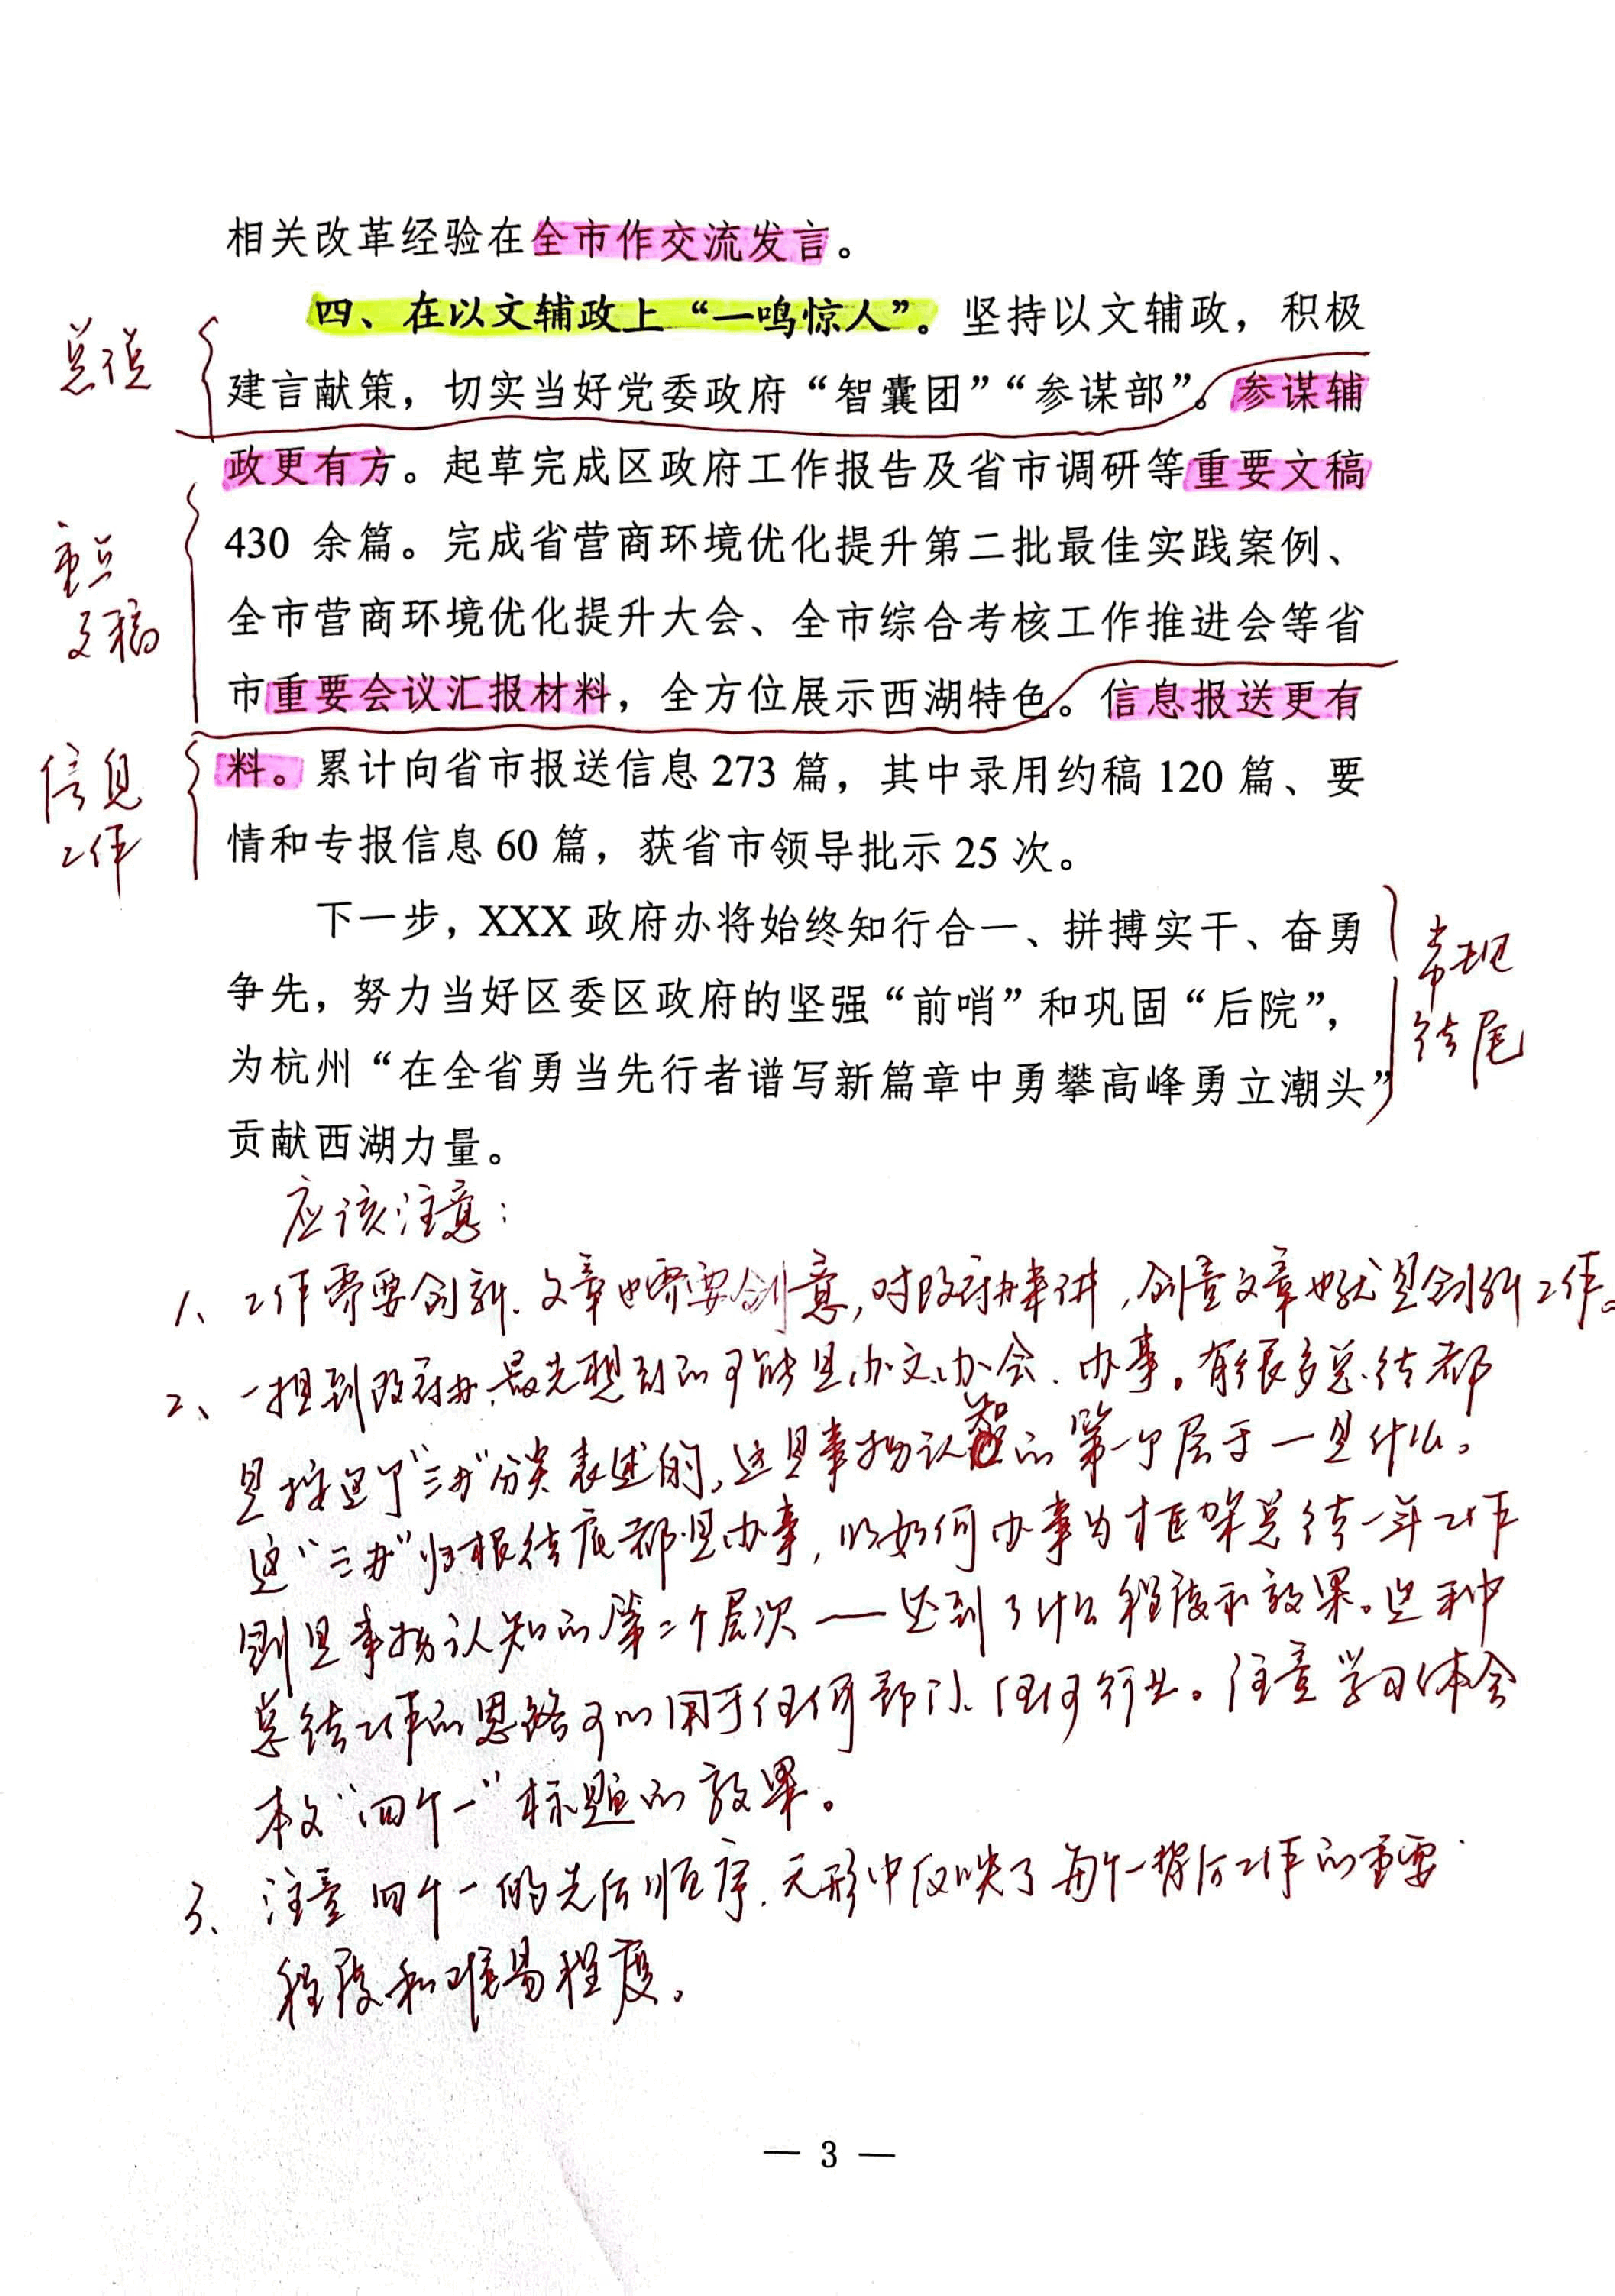 相关改革经验在全市作交流发言。
四、在以文辅政上“一鸣惊人”。坚持以文辅政，积极
建言献策，切实当好党委政府“智囊团”“参谋部”。参谋辅
政更有方。起草完成区政府工作报告及省市调研等重要文稿
430 余篇。完成省营商环境优化提升第二批最佳实践案例、
全市营商环境优化提升大会、全市综合考核工作推进会等省
市重要会议汇报材料，全方位展示西湖特色。信息报送更有
料。累计向省市报送信息 273 篇，其中录用约稿 120 篇、要
情和专报信息 60 篇，获省市领导批示 25 次。
下一步，XXX 政府办将始终知行合一、拼搏实干、奋勇
争先，努力当好区委区政府的坚强“前哨”和巩固“后院”，
为杭州“在全省勇当先行者谱写新篇章中勇攀高峰勇立潮头”
贡献西湖力量。
总说
重点
文稿
信息
工作
常规
结尾
应该注意：
1、工作需要创新，文章也需要创意，对政府办来讲，创意文章也就是创新工作。
2、一提到政府办，最先想到的可能是办文、办会、办事。有很多总结都
是按这个“三办”分类表述的，这是事物认知的第一个层于一是什么。
这“三办”归根结底都是办事，以如何办事为框架总结一年工作
则是事物认知的第二个层次——达到了什么程度和效果。这种
总结工作的思路可以用于任何部门、任何行业。注意学习体会
本文“四个一”标题的效果。
3、注意四个一的先后顺序，无形中反映了每个一背后工作的重要
程度和难易程度。
— 3 —